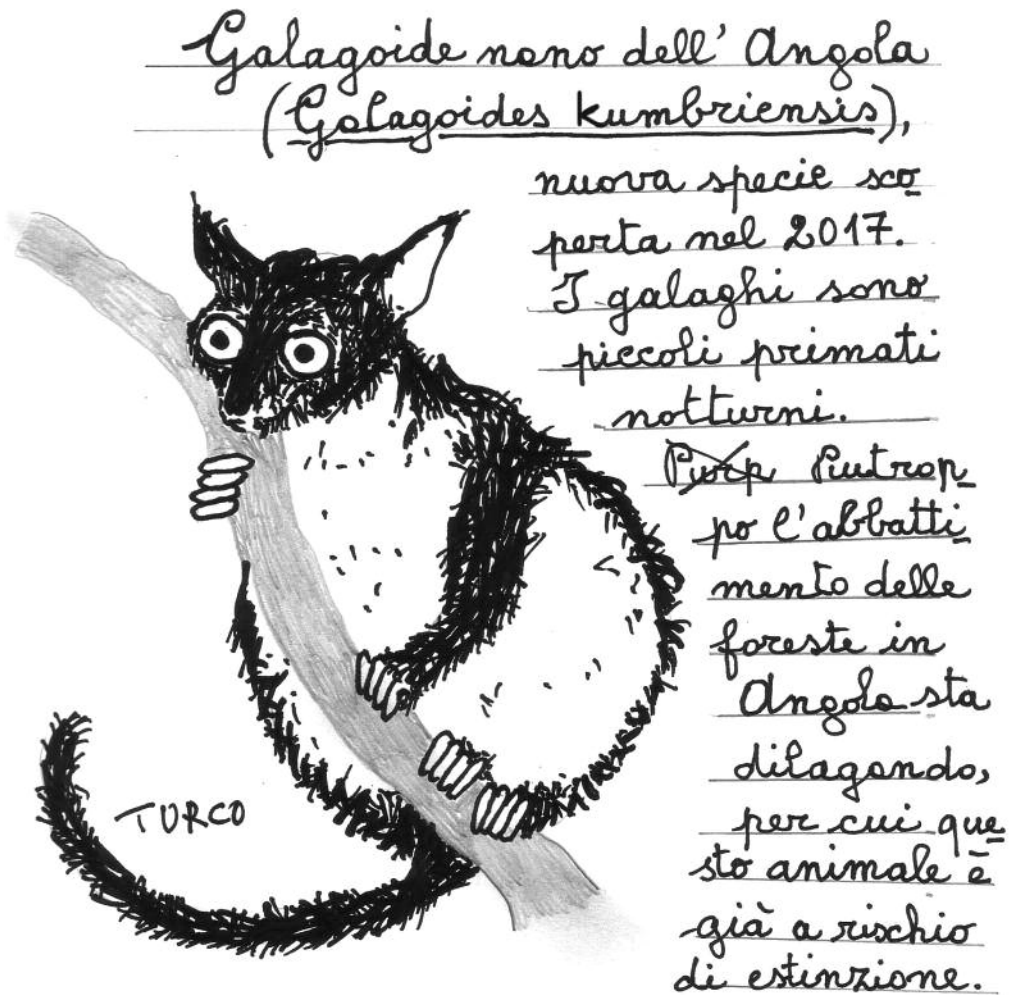 Galagoide nano dell'Angola
(Galagoides kumbriensis),
nuova specie sco
perta nel 2017.
I galaghi sono
piccoli primati
notturni.
Purp Purtrop
po l'abbatti
mento delle
foreste in
Angola sta
dilagando,
per cui que
sto animale è
già a rischio
di estinzione.
TURCO